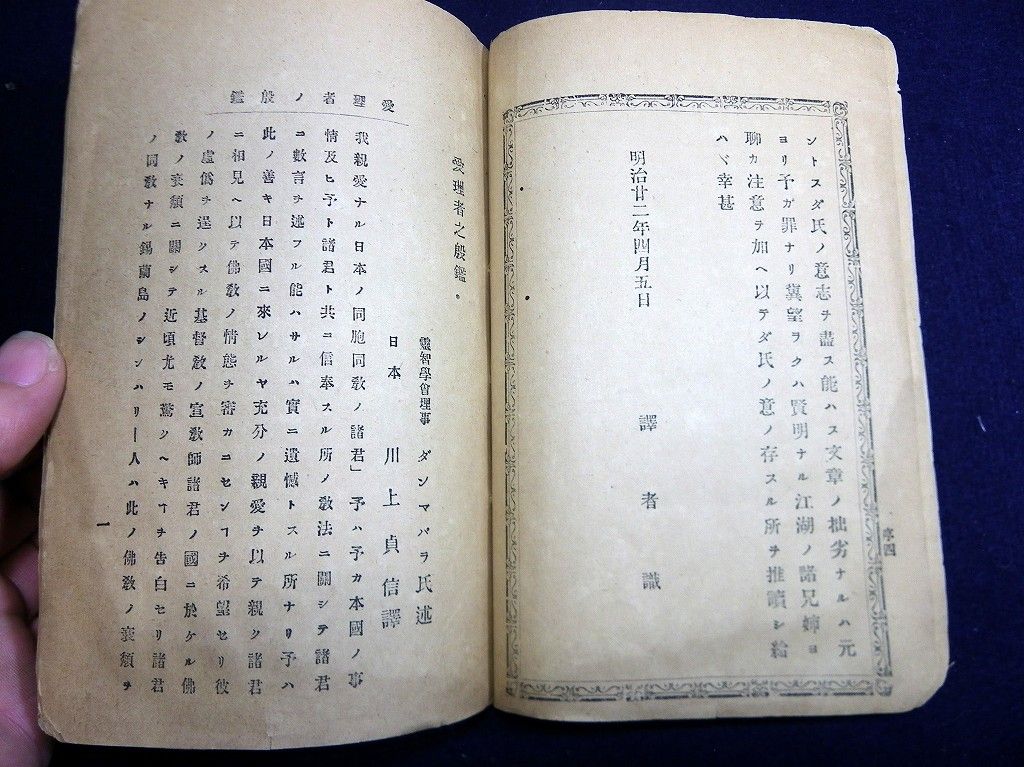 ントスダ氏ノ意志チ盡ス能ハス文章ノ拙劣ナルハ元
ヨリ予ガ罪ナリ冀望ヲクハ賢明ナル江湖ノ諸兄姉ヨ
聊カ注意ヲ加ヘ以テダ氏ノ意ノ存スル所ヲ推讀シ給
ハヾ幸甚
明治廿二年四月五日
譯者識
序四
愛理者ノ殷鑑
愛理者之殷鑑。
靈智學會理事 ダンマパラ氏述
日本 川上貞信譯
我親愛ナル日本ノ同胞同敎ノ諸君」予ハ予カ本國ノ事
情及ヒ予ト諸君ト共ニ信奉スル所ノ敎法ニ關シテ諸君
ニ數言ヲ述フル能ハサルハ實ニ遺憾トスル所ナリ予ハ
此ノ善キ日本國ニ來レルヤ充分ノ親愛チ以テ親ク諸君
ニ相見ヘ以テ佛敎ノ情態チ審カニセンヿチ希望セリ彼
ノ虛僞チ逞クスル基督敎ノ宣敎師諸君ノ國ニ於ケル佛
敎ノ衰頽ニ關シテ近頃尤モ驚クヘキヿチ告白セリ諸君
ノ同敎ナル錫蘭島ノシンハリー人ハ此ノ佛敎ノ衰頽チ
一